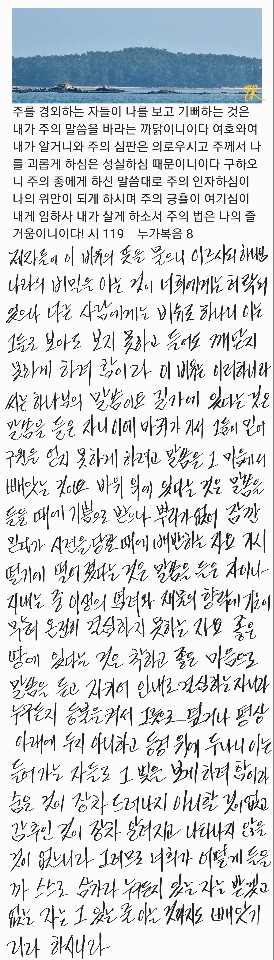 주를 경외하는 자들이 나를 보고 기뻐하는 것은
내가 주의 말씀을 바라는 까닭이니이다 여호와여
내가 알거니와 주의 심판은 의로우시고 주께서 나
를 괴롭게 하심은 성실하심 때문이니이다 구하오
니 주의 종에게 하신 말씀대로 주의 인자하심이
나의 위안이 되게 하시며 주의 긍휼이 여기심이
내게 임하사 내가 살게 하소서 주의 법은 나의 즐
거움이니이다! 시 119 누가복음 8
제자들이 이 비유의 뜻을 물으니 이르시되 하나님
나라의 비밀을 아는 것이 너희에게는 허락되
었으나 다른 사람에게는 비유로 하나니 이는
그들로 보아도 보지 못하고 들어도 깨닫지
못하게 하려 함이라 이 비유는 이러하니라
씨는 하나님의 말씀이요 길가에 있다는 것은
말씀을 들은 자니 이에 마귀가 가서 그들이 믿어
구원을 얻지 못하게 하려고 말씀을 그 마음에서
빼앗는 것이요 바위 위에 있다는 것은 말씀을
들을 때에 기쁨으로 받으나 뿌리가 없어 잠깐
믿다가 시련을 당할 때에 배반하는 자요 가시
떨기에 떨어졌다는 것은 말씀을 들은 자이나
지내는 중 이생의 염려와 재물과 향락에 기운이
막혀 온전히 결실하지 못하는 자요 좋은
땅에 있다는 것은 착하고 좋은 마음으로
말씀을 듣고 지키어 인내로 결실하는 자니라
누구든지 등불을 켜서 그릇으로 덮거나 평상
아래에 두지 아니하고 등경 위에 두나니 이는
들어가는 자들로 그 빛을 보게 하려 함이라
숨은 것이 장차 드러나지 아니할 것이 없고
감추인 것이 장차 알려지고 나타나지 않을
것이 없느니라 그러므로 너희가 어떻게 들을
까 스스로 삼가라 누구든지 있는 자는 받겠고
없는 자는 그 있는 줄로 아는 것까지도 빼앗기
리라 하시니라